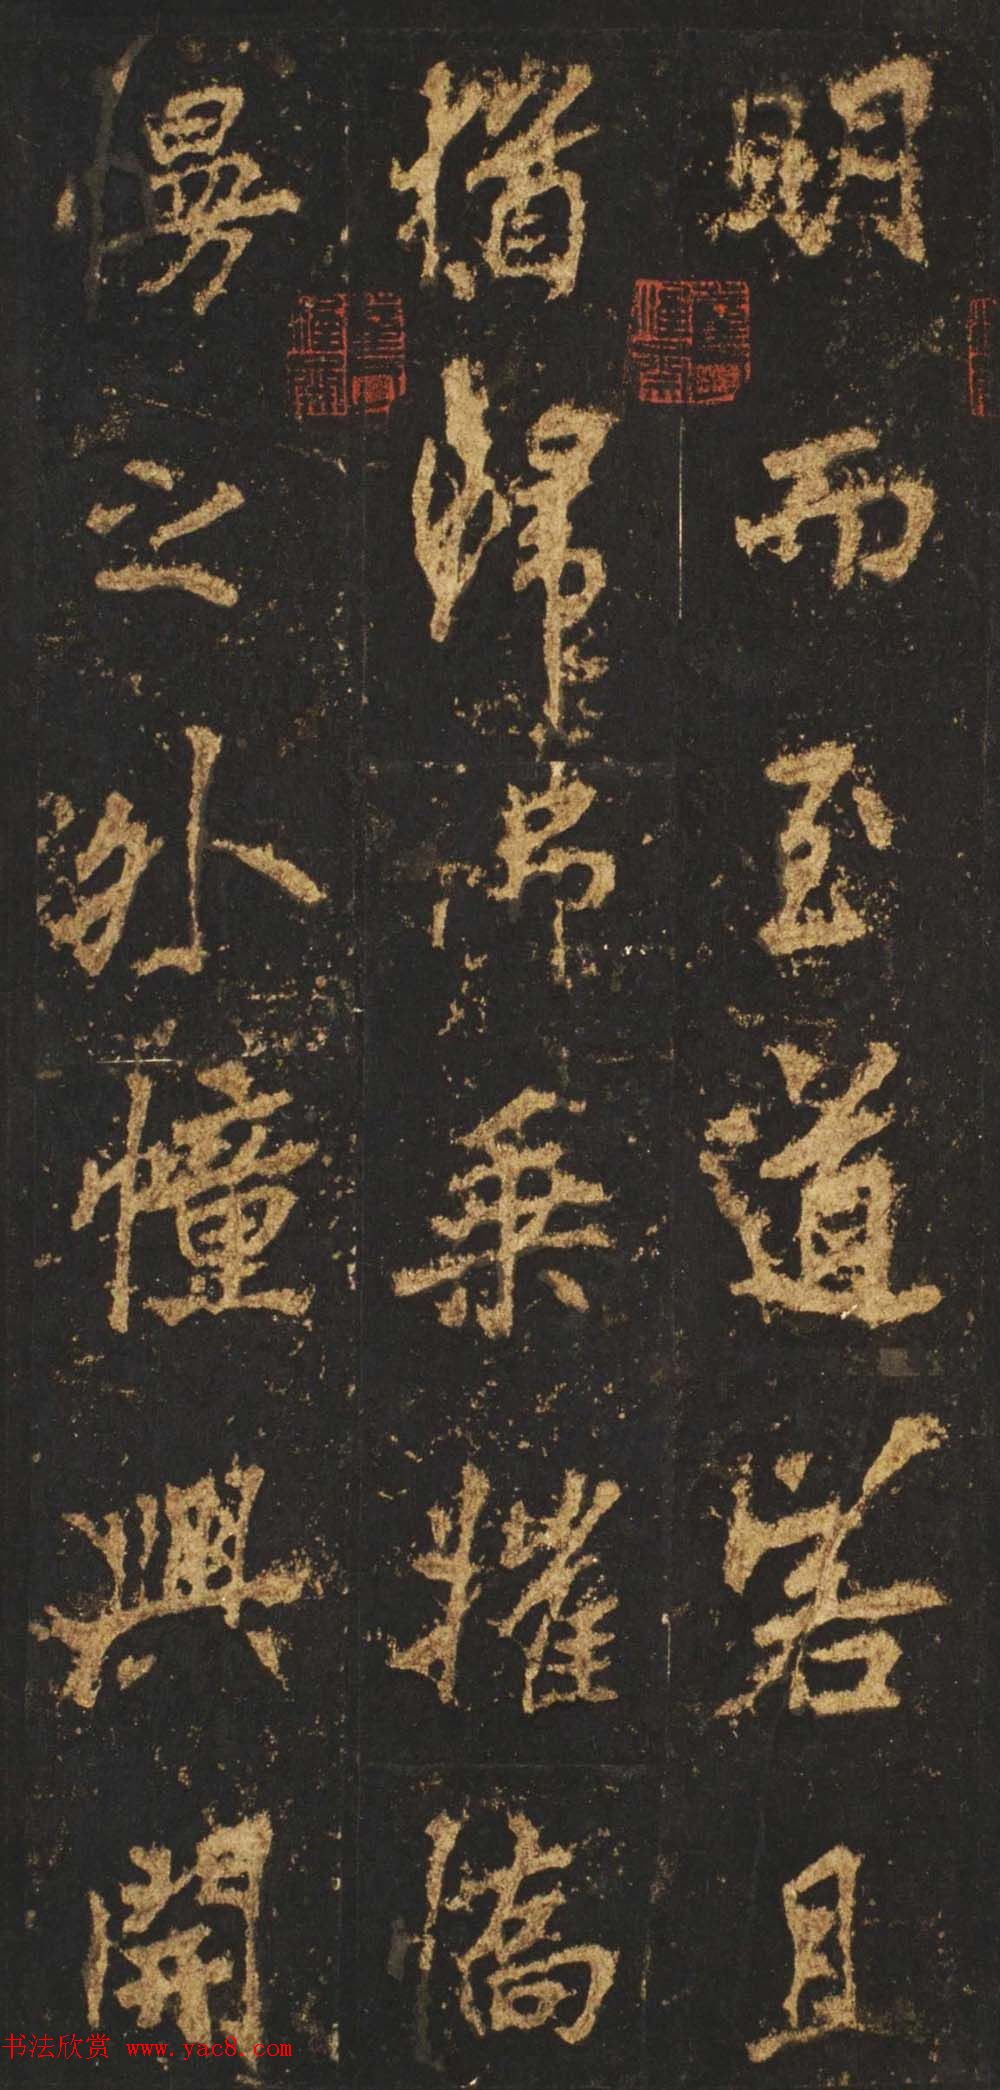 明而至道若且
猶歸乘摧憍
慢之外幢興開
书法欣赏 www.yac8.com